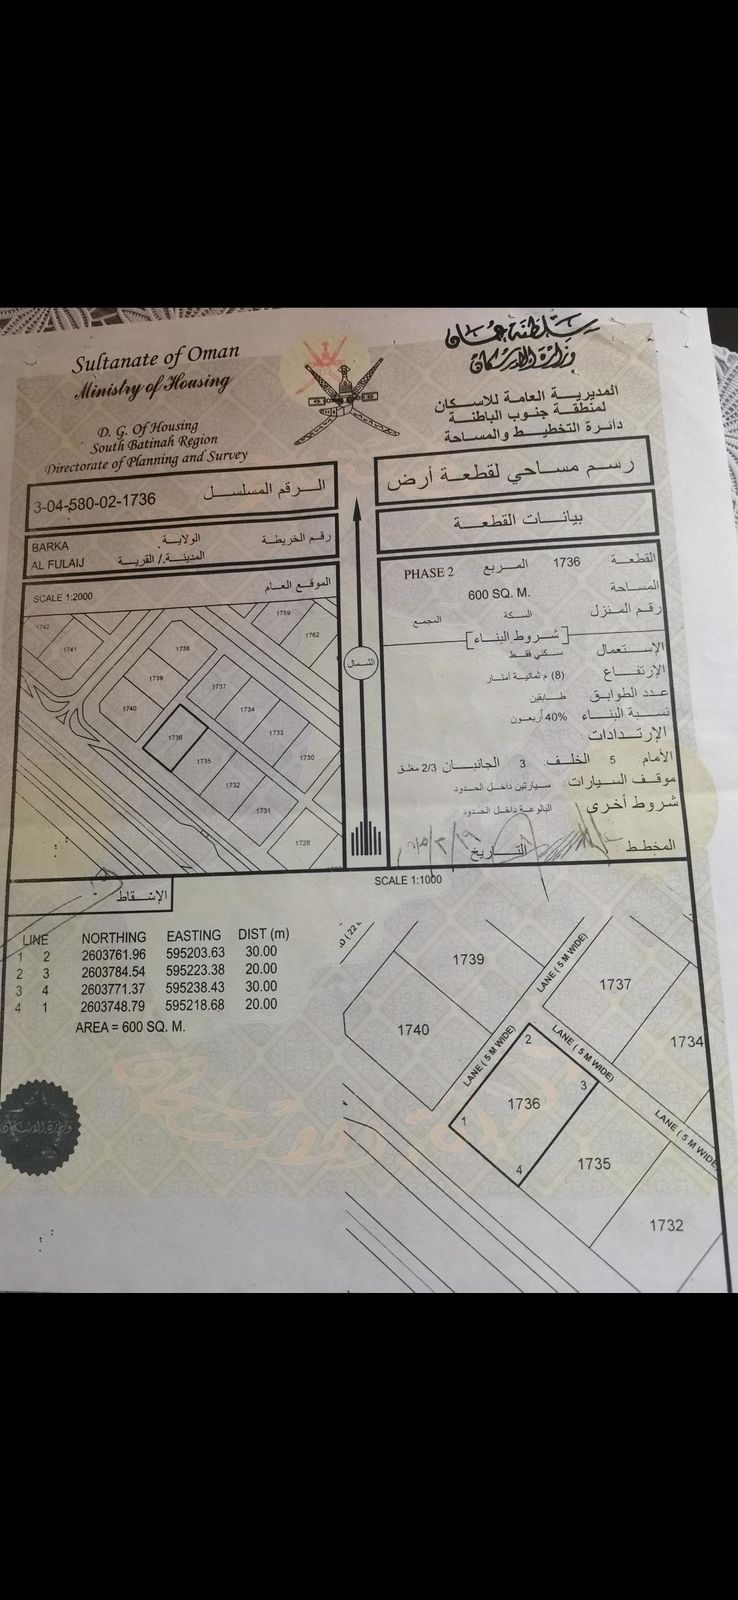 Sultanate of Oman
Ministry of Housing
D. G. Of Housing
South Batinah Region
Directorate of Planning and Survey
سلطنة عمان
وزارة الإسكان
المديرية العامة للاسكان
لمنطقة جنوب الباطنة
دائرة التخطيط والمساحة
3-04-580-02-1736 الرقم المسلسل
BARKA الولاية رقم الخريطة
AL FULAIJ المدينة / القرية
SCALE 1:2000 الموقع العام
1742
1741
1738
1759
1762
1739
1737
1740
1734
1736
1733
1735
1730
1732
1731
1728
الشمال
رسم مساحي لقطعة أرض
بيانات القطعة
القطعة 1736 المربع PHASE 2
المساحة 600 SQ. M.
رقم المنزل السكة المجمع
[شروط البناء]
الإستعمال سكني فقط
الإرتفاع (8) م ثمانية امتار
عدد الطوابق طابقين
نسبة البناء 40% أربعون
الإرتدادات:
الأمام 5 الخلف 3 الجانبان 2/3 مغلق
موقف السيارات: سيارتين داخل الحدود
شروط أخرى: البالوعة داخل الحدود
المخطط التاريخ
SCALE 1:1000
الإسقاط
LINE NORTHING EASTING DIST (m)
1 2 2603761.96 595203.63 30.00
2 3 2603784.54 595223.38 20.00
3 4 2603771.37 595238.43 30.00
4 1 2603748.79 595218.68 20.00
AREA = 600 SQ. M.
وزارة الاسكان
1739
LANE ( 5 M WIDE)
1737
1740
LANE ( 5 M WIDE)
2
LANE ( 5 M WIDE)
1734
3
1736
1
LANE ( 5 M WIDE)
4
1735
1732